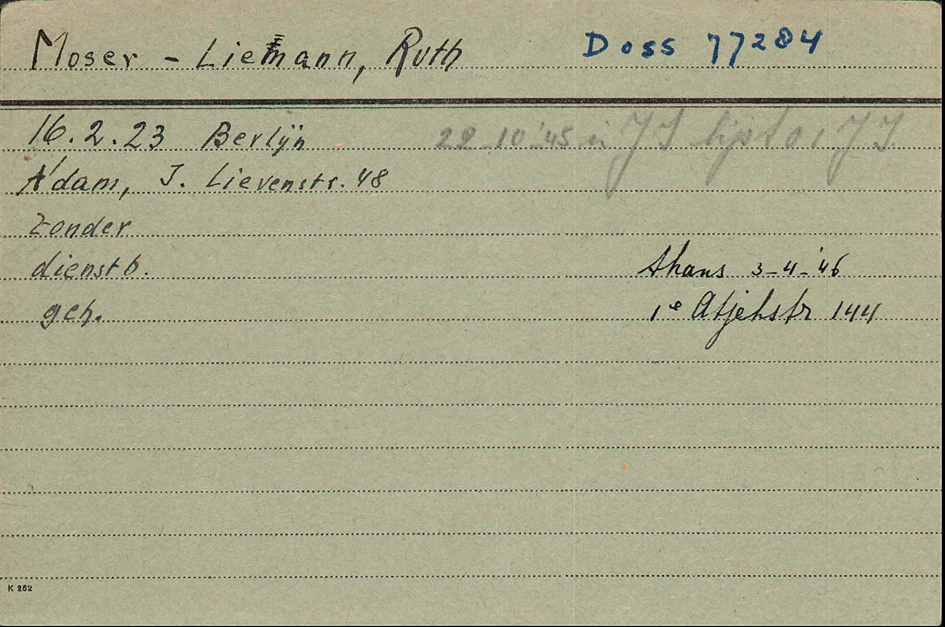 Moser - Liemann, Ruth Doss 77284
16.2.23 Berlijn 22-10-'45 in JJ lijst 01 JJ.
A'dam, J. Lievenstr. 48
zonder
dienstb. thans 3-4-'46
geh. 1e Atjehstr 144
K 262